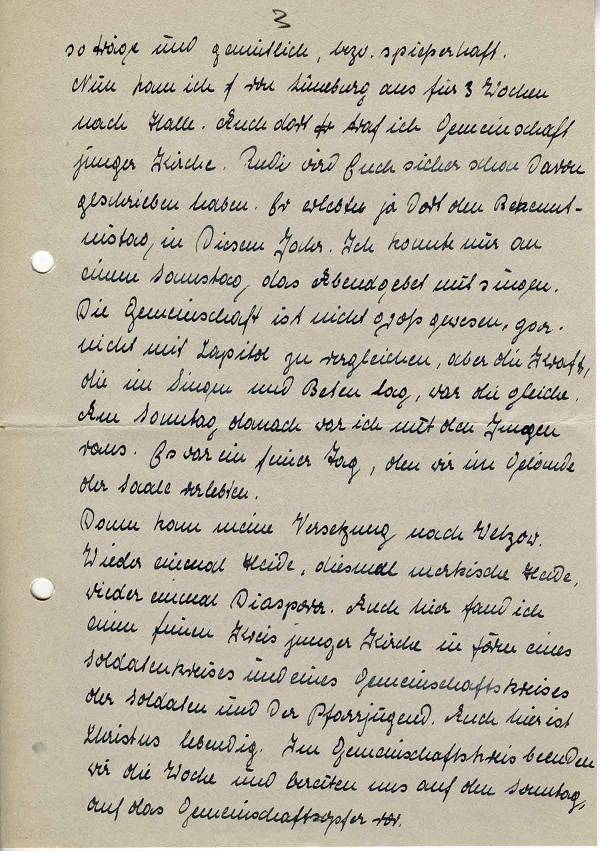 3
so träge und gemütlich, bzw. spießerhaft.
Nun kam ich von Lüneburg aus für 3 Wochen
nach Halle. Auch dort traf ich Gemeinschaft
junger Kirche. Rudi wird Euch sicher schon davon
geschrieben haben. Er erlebte ja dort den Bekennt-
nistag, in diesem Jahr. Ich konnte nur an
einem Samstag, das Abendgebet mit singen.
Die Gemeinschaft ist nicht groß gewesen, gar-
nicht mit Kapitol zu vergleichen, aber die Kraft,
die im Singen und Beten lag, war die gleiche.
Am Sonntag danach war ich mit den Jungen
raus. Es war ein feiner Tag, den wir im Gelände
der Saale verlebten.
Dann kam meine Versetzung nach Welzow.
Wieder einmal Heide, diesmal märkische Heide,
wieder einmal Diaspora. Auch hier fand ich
einen feinen Kreis junger Kirche in form eines
Soldatenkreises und eines Gemeinschaftskreises
der Soldaten und der Pfarrjugend. Auch hier ist
Christus lebendig. Im Gemeinschaftskreis beenden
wir die Woche und bereiten uns auf den Sonntag,
auf das Gemeinschaftsopfer vor.